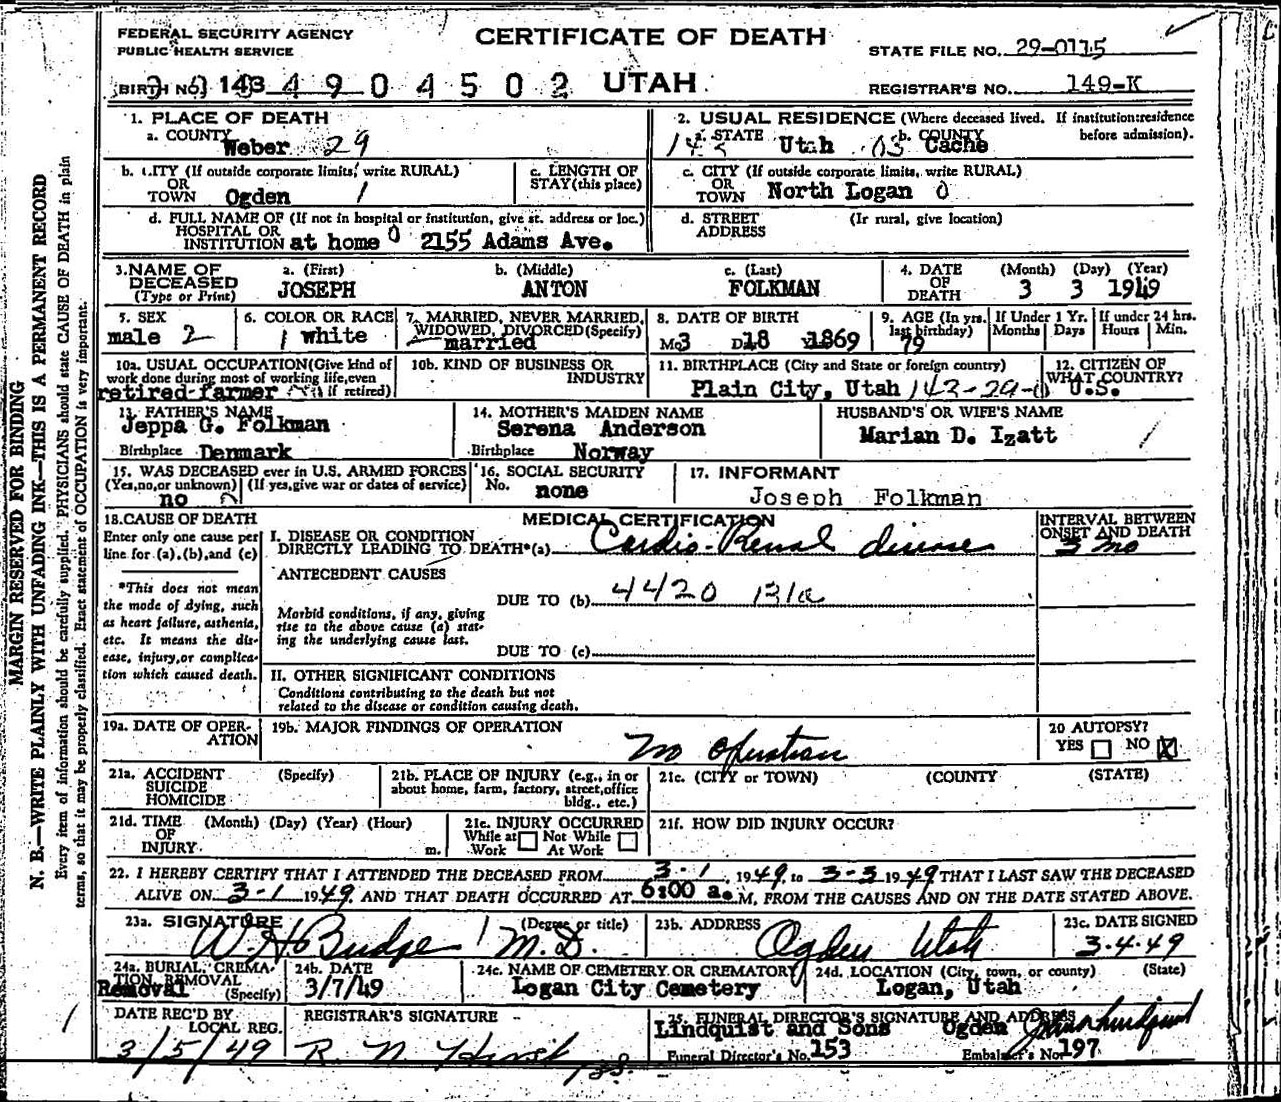 FEDERAL SECURITY AGENCY
PUBLIC HEALTH SERVICE
CERTIFICATE OF DEATH
UTAH
STATE FILE NO. 29-0115
BIRTH NO. 143 4904502
REGISTRAR'S NO. 149-K
MARGIN RESERVED FOR BINDING
N. B.—WRITE PLAINLY WITH UNFADING INK—THIS IS A PERMANENT RECORD
Every item of information should be carefully supplied. PHYSICIANS should state CAUSE OF DEATH in plain
terms, so that it may be properly classified. Exact statement of OCCUPATION is very important.
1. PLACE OF DEATH
a. COUNTY Weber 29
2. USUAL RESIDENCE (Where deceased lived. If institution:residence
before admission).
a. STATE Utah 03 b. COUNTY Cache
b. CITY (If outside corporate limits, write RURAL)
OR
TOWN Ogden 1
c. LENGTH OF
STAY (this place)
c. CITY (If outside corporate limits, write RURAL)
OR
TOWN North Logan 0
d. FULL NAME OF (If not in hospital or institution, give st. address or loc.)
HOSPITAL OR
INSTITUTION at home 0 2155 Adams Ave.
d. STREET (If rural, give location)
ADDRESS
3. NAME OF DECEASED (Type or Print)
a. (First) JOSEPH
b. (Middle) ANTON
c. (Last) FOLKMAN
4. DATE OF DEATH (Month) (Day) (Year)
3 3 1949
5. SEX
male 2
6. COLOR OR RACE
1 white
7. MARRIED, NEVER MARRIED,
WIDOWED, DIVORCED (Specify)
married
8. DATE OF BIRTH
Mo 3 D 18 Y 1869
9. AGE (In yrs. last birthday)
79
If Under 1 Yr. Months Days
If under 24 hrs. Hours Min.
10a. USUAL OCCUPATION (Give kind of
work done during most of working life, even
if retired)
retired farmer
10b. KIND OF BUSINESS OR
INDUSTRY
11. BIRTHPLACE (City and State or foreign country)
Plain City, Utah 143-29-0
12. CITIZEN OF
WHAT COUNTRY?
U.S.
13. FATHER'S NAME
Jeppa G. Folkman
Birthplace Denmark
14. MOTHER'S MAIDEN NAME
Serena Anderson
Birthplace Norway
HUSBAND'S OR WIFE'S NAME
Marian D. Izatt
15. WAS DECEASED ever in U.S. ARMED FORCES
(Yes, no, or unknown) (If yes, give war or dates of service)
no
16. SOCIAL SECURITY
No. none
17. INFORMANT
Joseph Folkman
18. CAUSE OF DEATH
Enter only one cause per
line for (a), (b), and (c)
*This does not mean
the mode of dying, such
as heart failure, asthenia,
etc. It means the dis-
ease, injury, or complica-
tion which caused death.
MEDICAL CERTIFICATION
I. DISEASE OR CONDITION
DIRECTLY LEADING TO DEATH*(a) Cardio-Renal disease
INTERVAL BETWEEN
ONSET AND DEATH
3 mo
ANTECEDENT CAUSES
DUE TO (b) 4420 131a
Morbid conditions, if any, giving
rise to the above cause (a) stat-
ing the underlying cause last.
DUE TO (c)
II. OTHER SIGNIFICANT CONDITIONS
Conditions contributing to the death but not
related to the disease or condition causing death.
19a. DATE OF OPER-
ATION
19b. MAJOR FINDINGS OF OPERATION
no operation
20 AUTOPSY?
YES NO X
21a. ACCIDENT (Specify)
SUICIDE
HOMICIDE
21b. PLACE OF INJURY (e.g., in or
about home, farm, factory, street, office
bldg., etc.)
21c. (CITY or TOWN) (COUNTY) (STATE)
21d. TIME (Month) (Day) (Year) (Hour)
OF
INJURY m.
21e. INJURY OCCURRED
While at Work Not While At Work
21f. HOW DID INJURY OCCUR?
22. I HEREBY CERTIFY THAT I ATTENDED THE DECEASED FROM 3-1 1949, to 3-3 1949 THAT I LAST SAW THE DECEASED
ALIVE ON 3-1 1949, AND THAT DEATH OCCURRED AT 6:00 a. M, FROM THE CAUSES AND ON THE DATE STATED ABOVE.
23a. SIGNATURE (Degree or title)
W. H. Budge M.D.
23b. ADDRESS
Ogden Utah
23c. DATE SIGNED
3-4-49
24a. BURIAL, CREMA-
TION, REMOVAL
Removal (Specify)
24b. DATE
3/7/49
24c. NAME OF CEMETERY OR CREMATORY
Logan City Cemetery
24d. LOCATION (City, town, or county) (State)
Logan, Utah
DATE REC'D BY
LOCAL REG.
3/5/49
REGISTRAR'S SIGNATURE
R. N. Hirst
25. FUNERAL DIRECTOR'S SIGNATURE AND ADDRESS
Lindquist and Sons Ogden
Funeral Director's No. 153 Embalmer's No. 197